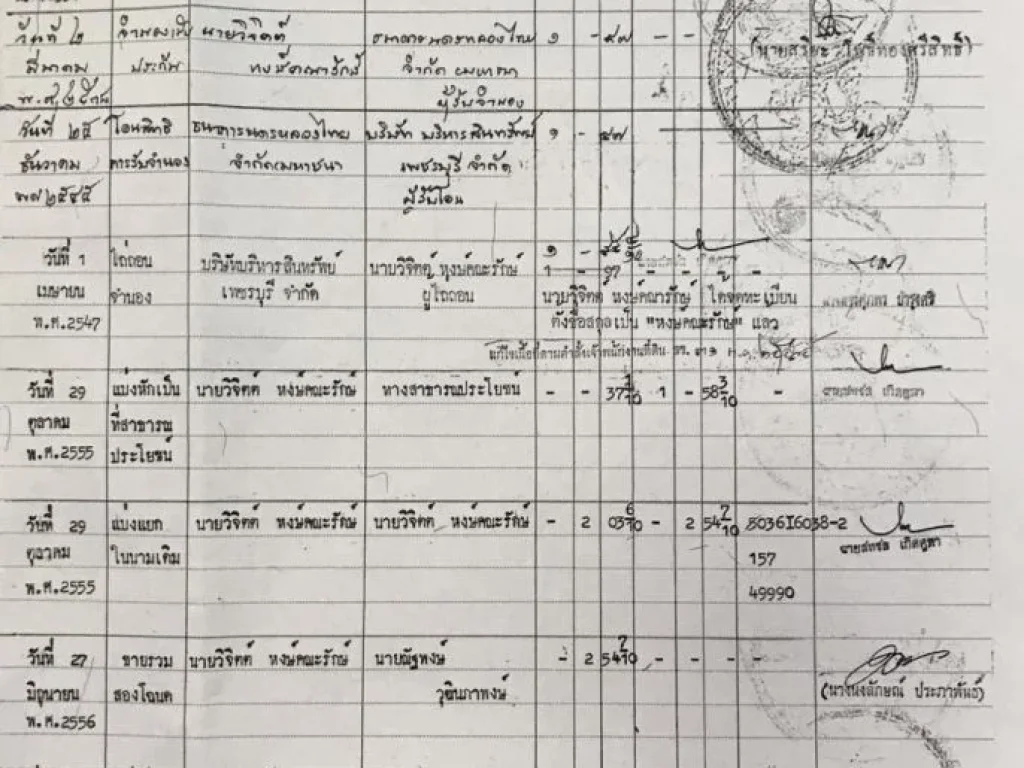 วันที่ ๒ จำนองเป็น นายวิจิตต์ ธนาคารนครหลวงไทย ๑ - ๕๗ - -
มีนาคม ประกัน หงษ์คณารักษ์ จำกัด มหาชน
ผู้รับจำนอง
วันที่ ๒๕ โอนสิทธิ ธนาคารนครหลวงไทย บริษัท บริหารสินทรัพย์ ๑ - ๕๗
ธันวาคม การรับจำนอง จำกัดมหาชน เพชรบุรี จำกัด
พ.ศ ๒๕๔๕ ผู้รับโอน
วันที่ 1 ไถ่ถอน บริษัทบริหารสินทรัพย์ นายวิจิตต์ หงษ์คณะรักษ์ 1 - 57 - - - -
เมษายน จำนอง เพชรบุรี จำกัด ผู้ไถ่ถอน นายวิจิตต์ หงษ์คณารักษ์ ได้จดทะเบียน
พ.ศ.2547 ตั้งชื่อสกุลเป็น "หงษ์คณะรักษ์" แล้ว
วันที่ 29 แบ่งหักเป็น นายวิจิตต์ หงษ์คณะรักษ์ ทางสาธารณประโยชน์ - - 37 1/10 1 - 58 3/10 -
ตุลาคม ที่สาธารณ
พ.ศ.2555 ประโยชน์
วันที่ 29 แบ่งแยก นายวิจิตต์ หงษ์คณะรักษ์ นายวิจิตต์ หงษ์คณะรักษ์ - 2 03 6/10 - 2 54 7/10 5036I6038-2
ตุลาคม ในนามเดิม 157
พ.ศ.2555 49990
วันที่ 27 ขายรวม นายวิจิตต์ หงษ์คณะรักษ์ นายณัฐพงษ์ - 2 54 7/10 - - - -
มิถุนายน สองโฉนด วุฒินภาพงษ์ (นางนงลักษณ์ ประภาพันธ์)
พ.ศ.2556